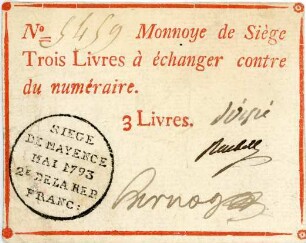 No 5459 Monnoye de Siège
Trois Livres à échanger contre
du numéraire.
3 Livres.
SIEGE
DE MAYENCE
MAI 1793
2E DE LA REP.
FRANC: